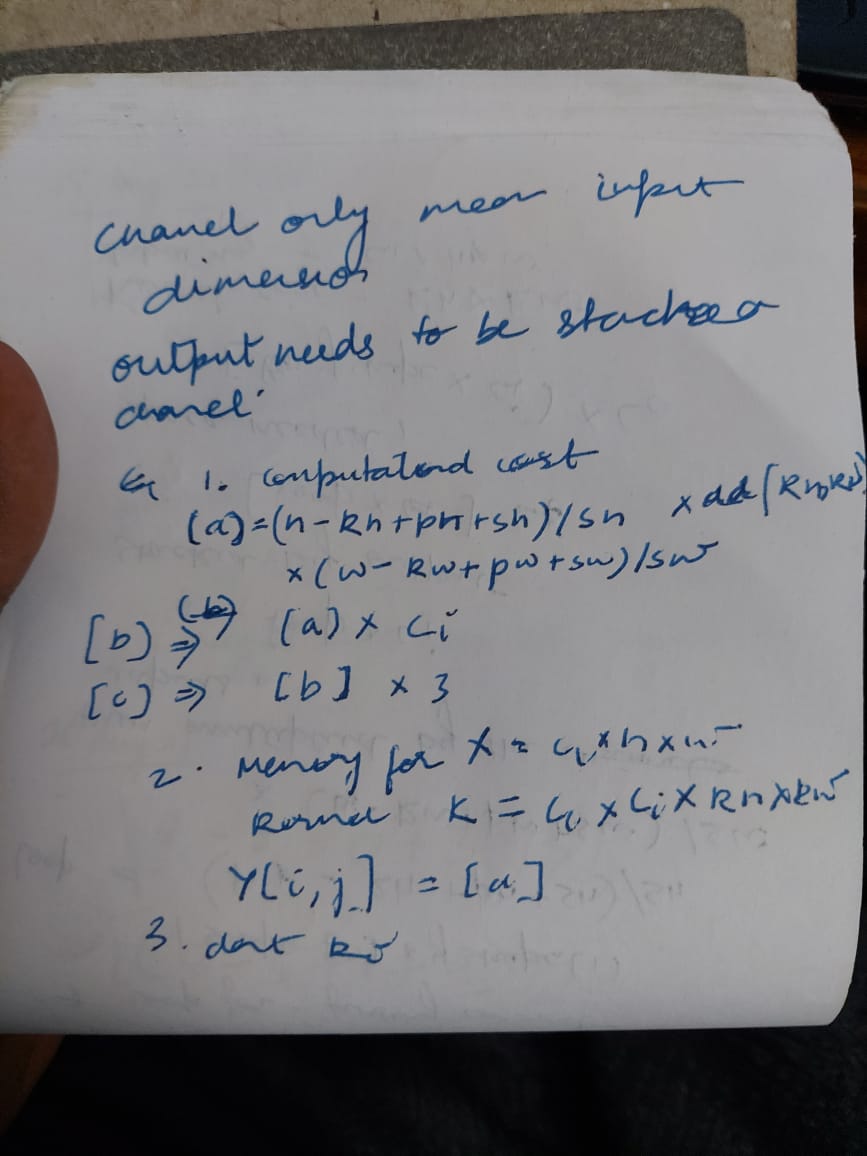 chanel only mean input
dimension
output needs to be stacked
chanel
1. computational cost
[a] = (h - kh + ph + sh) / sh × add (kh, kw)
× (w - kw + pw + sw) / sw
[b] ⇒ [a] × ci
[c] ⇒ [b] × 3
2. Memory for X = ci × h × w
Kernel K = co × ci × kh × kw
Y[i, j] = [a]
3. dont